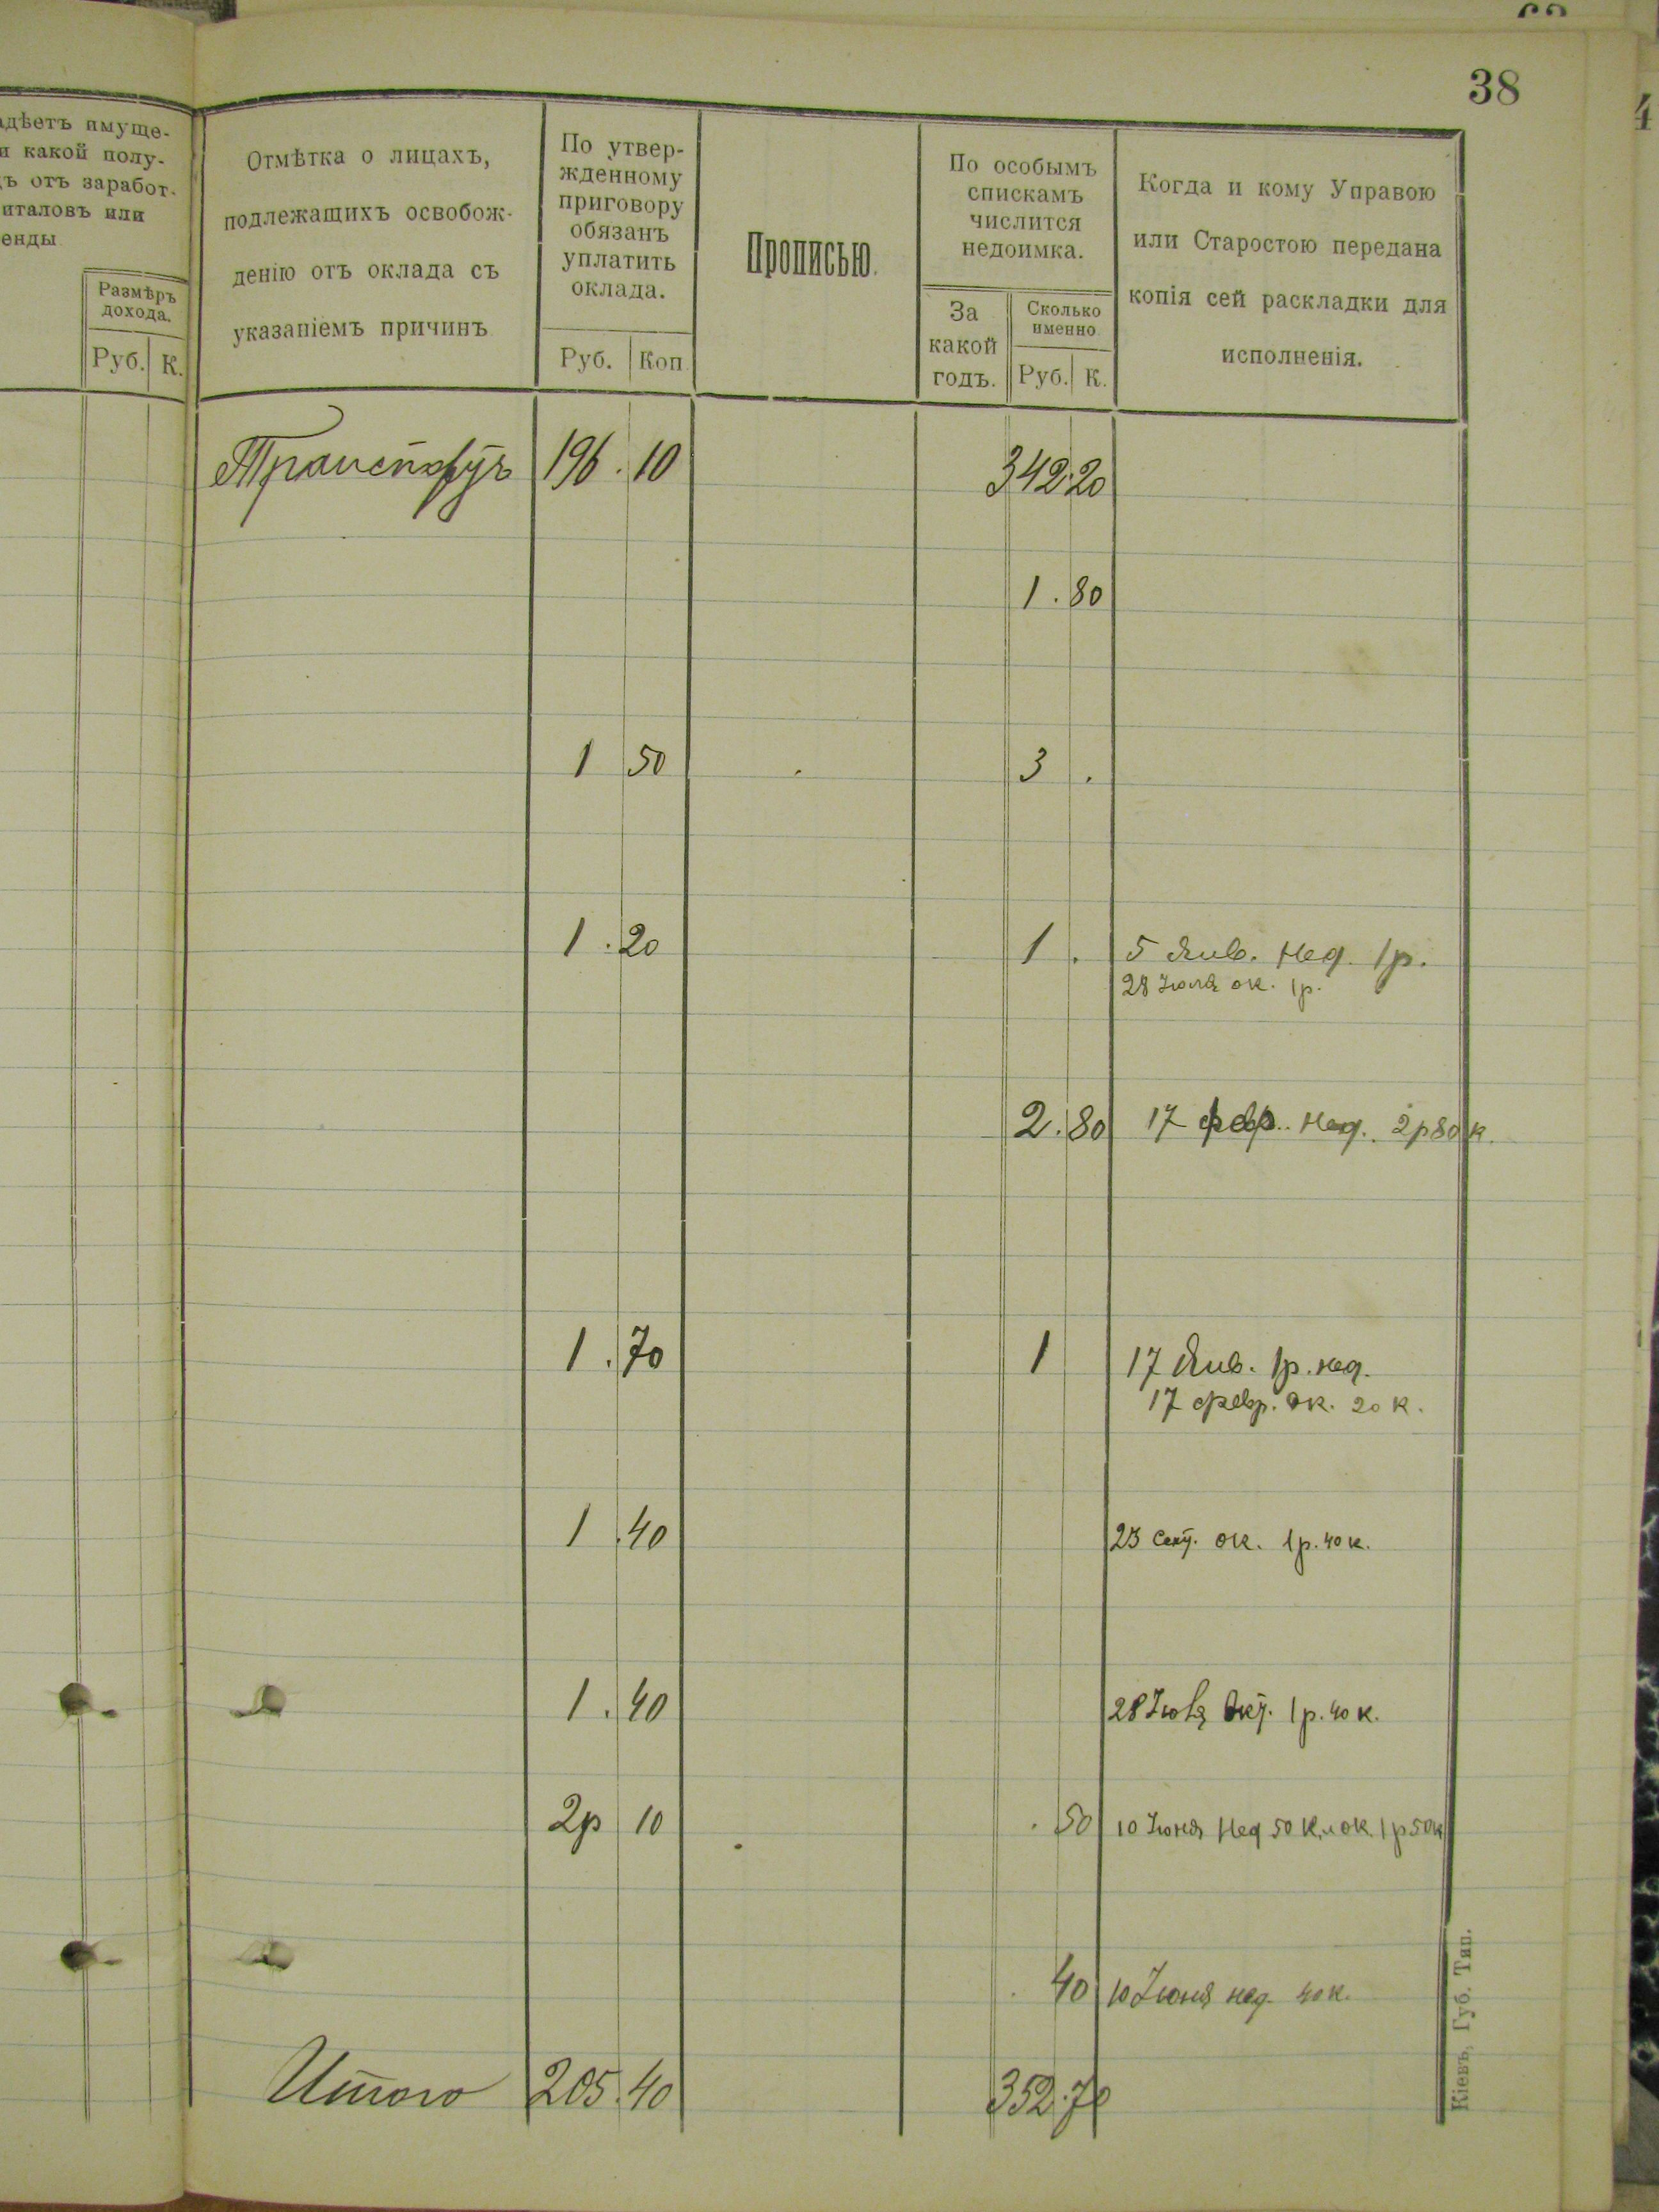 38
4
адѣетъ имуще-
и какой полу-
ъ отъ заработ-
италовъ или
енды
Размѣръ
дохода.
Руб. К.
Отмѣтка о лицахъ,
подлежащихъ освобож-
денію отъ оклада съ
указаніемъ причинъ
По утвер-
жденному
приговору
обязанъ
уплатить
оклада.
Руб. Коп
Прописью.
По особымъ
спискамъ
числится
недоимка.
За
какой
годъ.
Сколько
именно
Руб. К.
Когда и кому Управою
или Старостою передана
копія сей раскладки для
исполненія.
Транспортъ 196.10 342.20
1.80
1 50 3 .
1.20 1 . 5 Янв. Нед. 1р.
28 Іюля ок. 1р.
2.80 17 февр. Нед. 2р80к.
1.70 1 17 Янв. 1р. нед.
17 февр. ок. 20 к.
1.40 23 Сент. ок. 1р. 40к.
1.40 28 1р. 40к.
2р 10 . 50 10 Іюня Нед 50 к. и ок. 1р50к
. 40 10 Іюня нед. 40к.
Итого 205.40 352.70
Кіевъ, Губ. Тип.